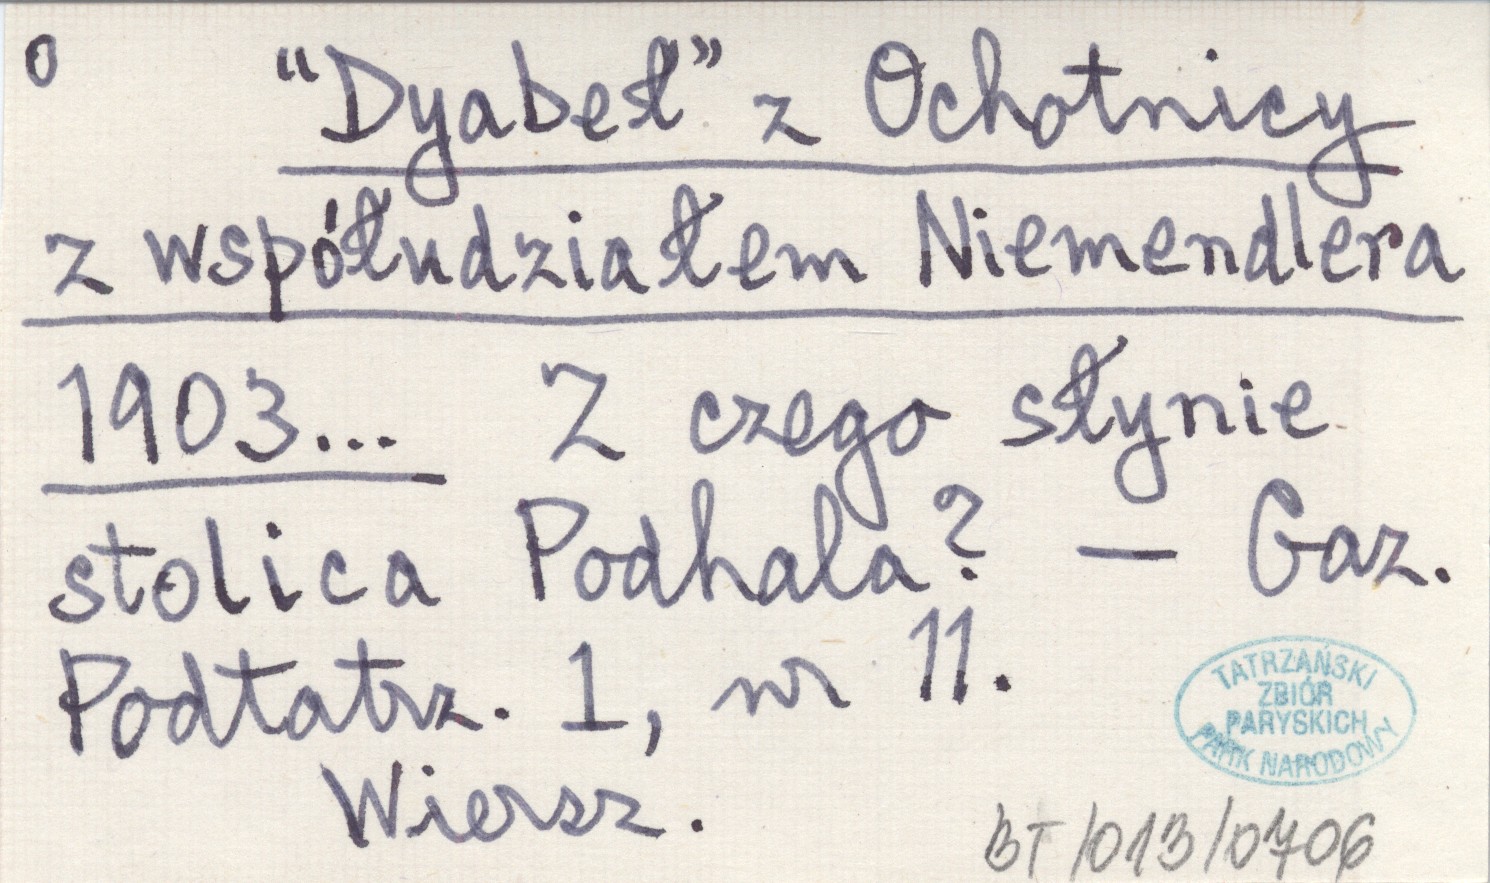 o "Dyabeł" z Ochotnicy
z współudziałem Niemendlera
1903... Z czego słynie
stolica Podhala? — Gaz.
Podtatrz. 1, nr 11.
Wiersz.
TATRZAŃSKI
ZBIÓR
PARYSKICH
PARK NARODOWY
BT/013/0706